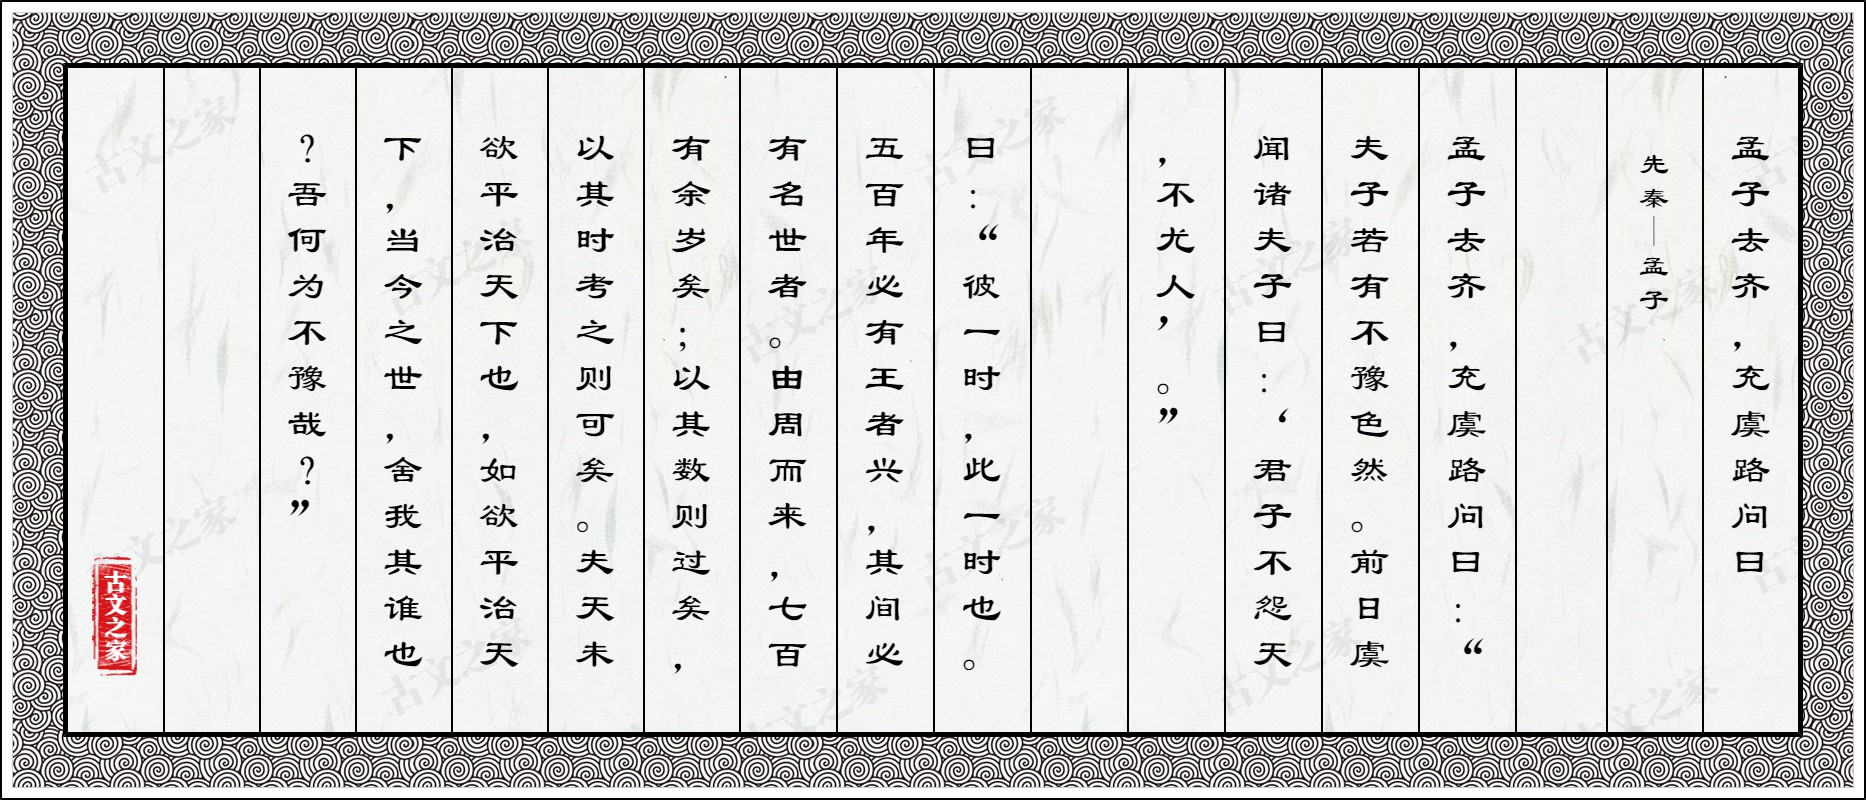 孟子去齐，充虞路问曰
先秦—孟子
孟子去齐，充虞路问曰：“
夫子若有不豫色然。前日虞
闻诸夫子曰：‘君子不怨天
，不尤人’。”
曰：“彼一时，此一时也。
五百年必有王者兴，其间必
有名世者。由周而来，七百
有余岁矣；以其数则过矣，
以其时考之则可矣。夫天未
欲平治天下也，如欲平治天
下，当今之世，舍我其谁也
？吾何为不豫哉？”
古文之家